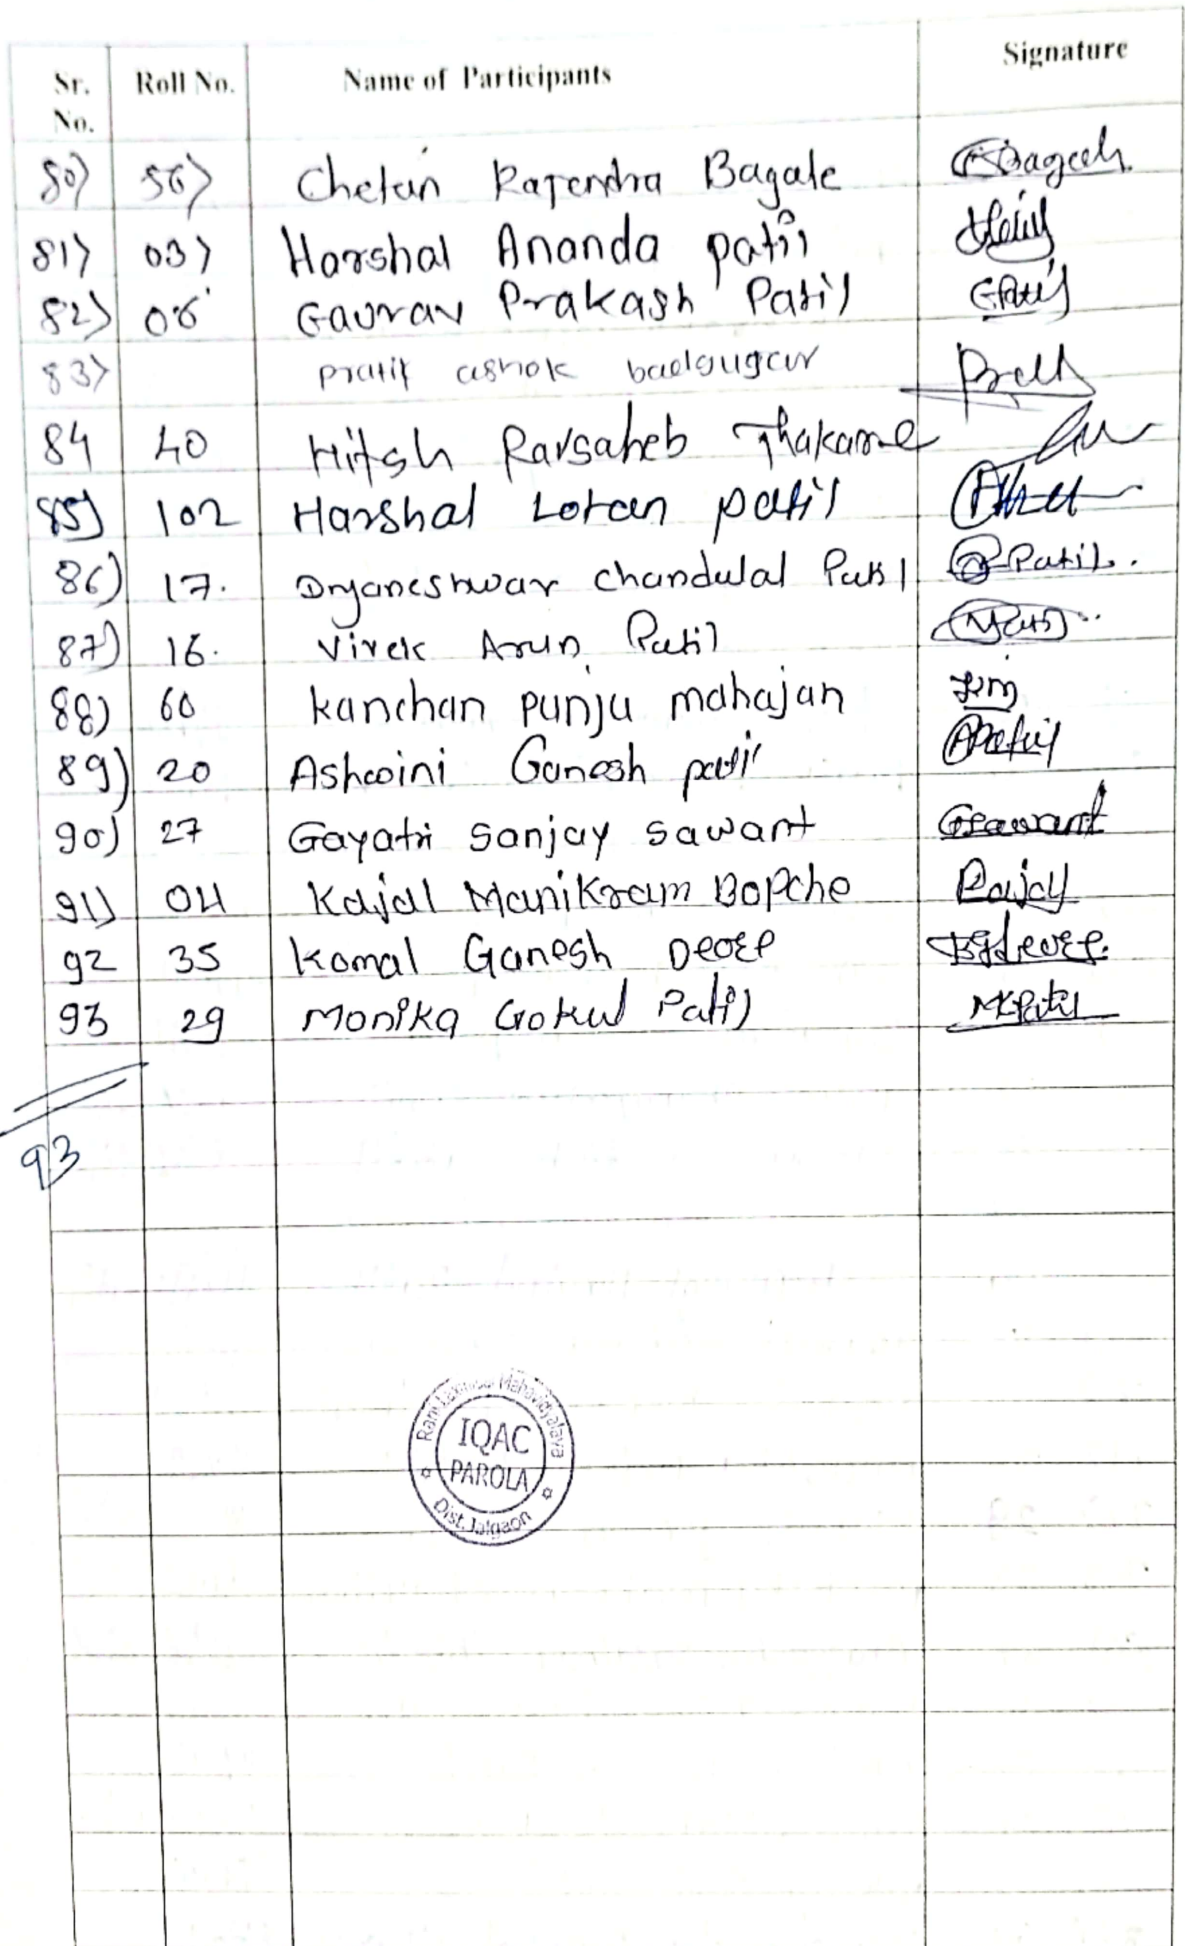 Sr. No. Roll No. Name of Participants Signature
80) 56) Chetan Rajendra Bagale
81) 03) Harshal Ananda patil
82) 06 Gaurav Prakash Patil GPatil
83) ashok
84 40 Hitesh Ravsaheb Thakare
85) 102 Harshal Lotan patil
86) 17. Dnyaneshwar chandulal Patil Patil.
87) 16. Vivek Arun Patil
88) 60 kanchan punju mahajan
89) 20 Ashwini Ganesh patil APatil
90) 27 Gayatri Sanjay Sawant GSawant
91) 04 Kajal Manikram Bopche
92 35 Komal Ganesh Deore
93 29 Monika Gokul Patil MGPatil
93
Ram Laxman Mahavidyalaya
IQAC
PAROLA
Dist. Jalgaon